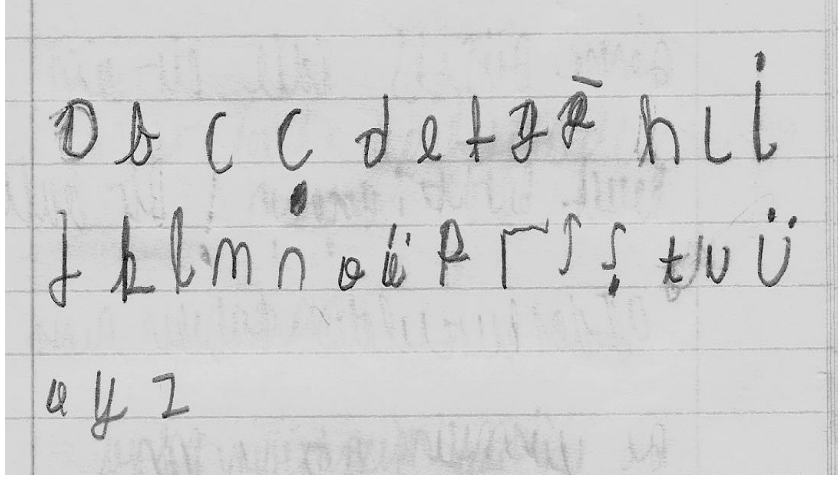 a b c ç d e f g ğ h ı i
j k l m n o ö p r s ş t u ü
v y z